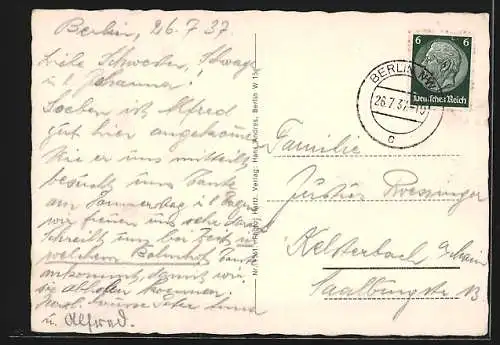 Berlin, 26.7.37.
Liebe Schwester, Schwager
u. l. Johanna!
Soeben ist Alfred
gut hier angekommen
Wie er uns mitteilte
besucht uns Tante
am Donnerstag
wir freuen uns sehr
Schreibt uns bei Zeit
welchem Bahnhof Tante
ankommt damit wir
sie abholen koennen.
Herzl. Grüsse Peter Anna
u. Alfred.
Verlag: Hans Andres, Berlin W 15
BERLIN
26.7.37.
c
6 6
Deutsches Reich
Familie
Justus
Kelsterbach a/Main
Saalburgstr 13